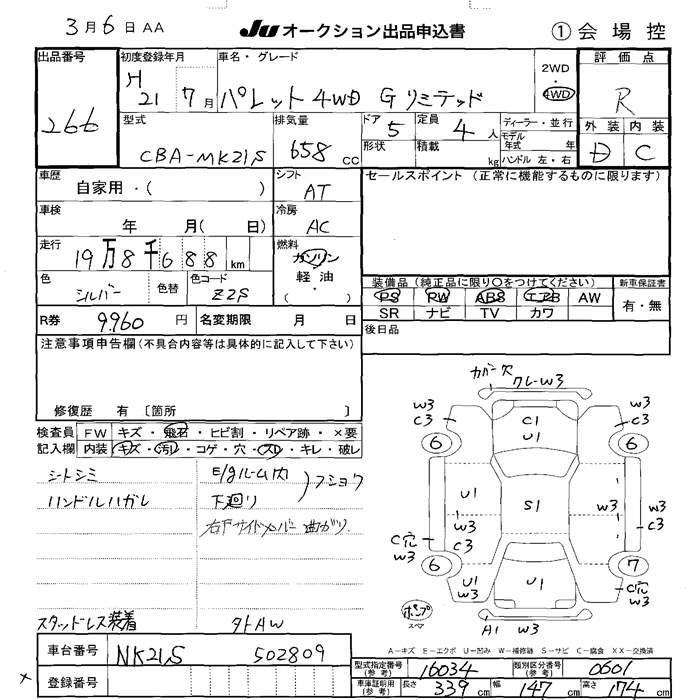 3月6日AA JU オークション出品申込書 ① 会場控
出品番号 266
初度登録年月 H 21 7月
車名・グレード パレット 4WD Gリミテッド
2WD・4WD
評価点 R
型式 CBA-MK21S
排気量 658 cc
ドア 5 形状
定員 4 人 積載 kg
ディーラー・並行
モデル年式 年
ハンドル 左・右
外装 D 内装 C
車歴 自家用・( )
シフト AT
セールスポイント(正常に機能するものに限ります)
車検 年 月( 日)
冷房 AC
走行 19万8千688 km
燃料 ガソリン 軽油 ( )
色 シルバー 色替 色コード Z2S
装備品(純正品に限り○をつけてください) 新車保証書
PS PW ABS エアB AW 有・無
SR ナビ TV カワ
R券 9960 円 名変期限 月 日
後日品
注意事項申告欄(不具合内容等は具体的に記入して下さい)
修復歴 有 〔箇所 〕
検査員記入欄 FW キズ・飛石・ヒビ割・リペア跡・×要
内装 キズ・汚れ・コゲ・穴・スレ・キレ・破レ
シートシミ
ハンドルハガレ
E/gルーム内
下廻り
フショウ
右下サイドメンバー曲がり
スタッドレス装着 外AW
カバー欠 クレ-W3
W3 C3 6 C1 U1 W3 C3 6
U1 W3 C3 S1 W3 W3 C3
C穴 W3 6 U1 W3 U1 7 C穴 W3
ポンプ スペア A1 W3
A-キズ E-エクボ U-凹み W-補修跡 S-サビ C-腐食 XX-交換済
車台番号 NK21S 502809
登録番号
×
型式指定番号(参考) 16034 類別区分番号(参考) 0601
車庫証明用(参考) 長さ 339 cm 幅 147 cm 高さ 174 cm